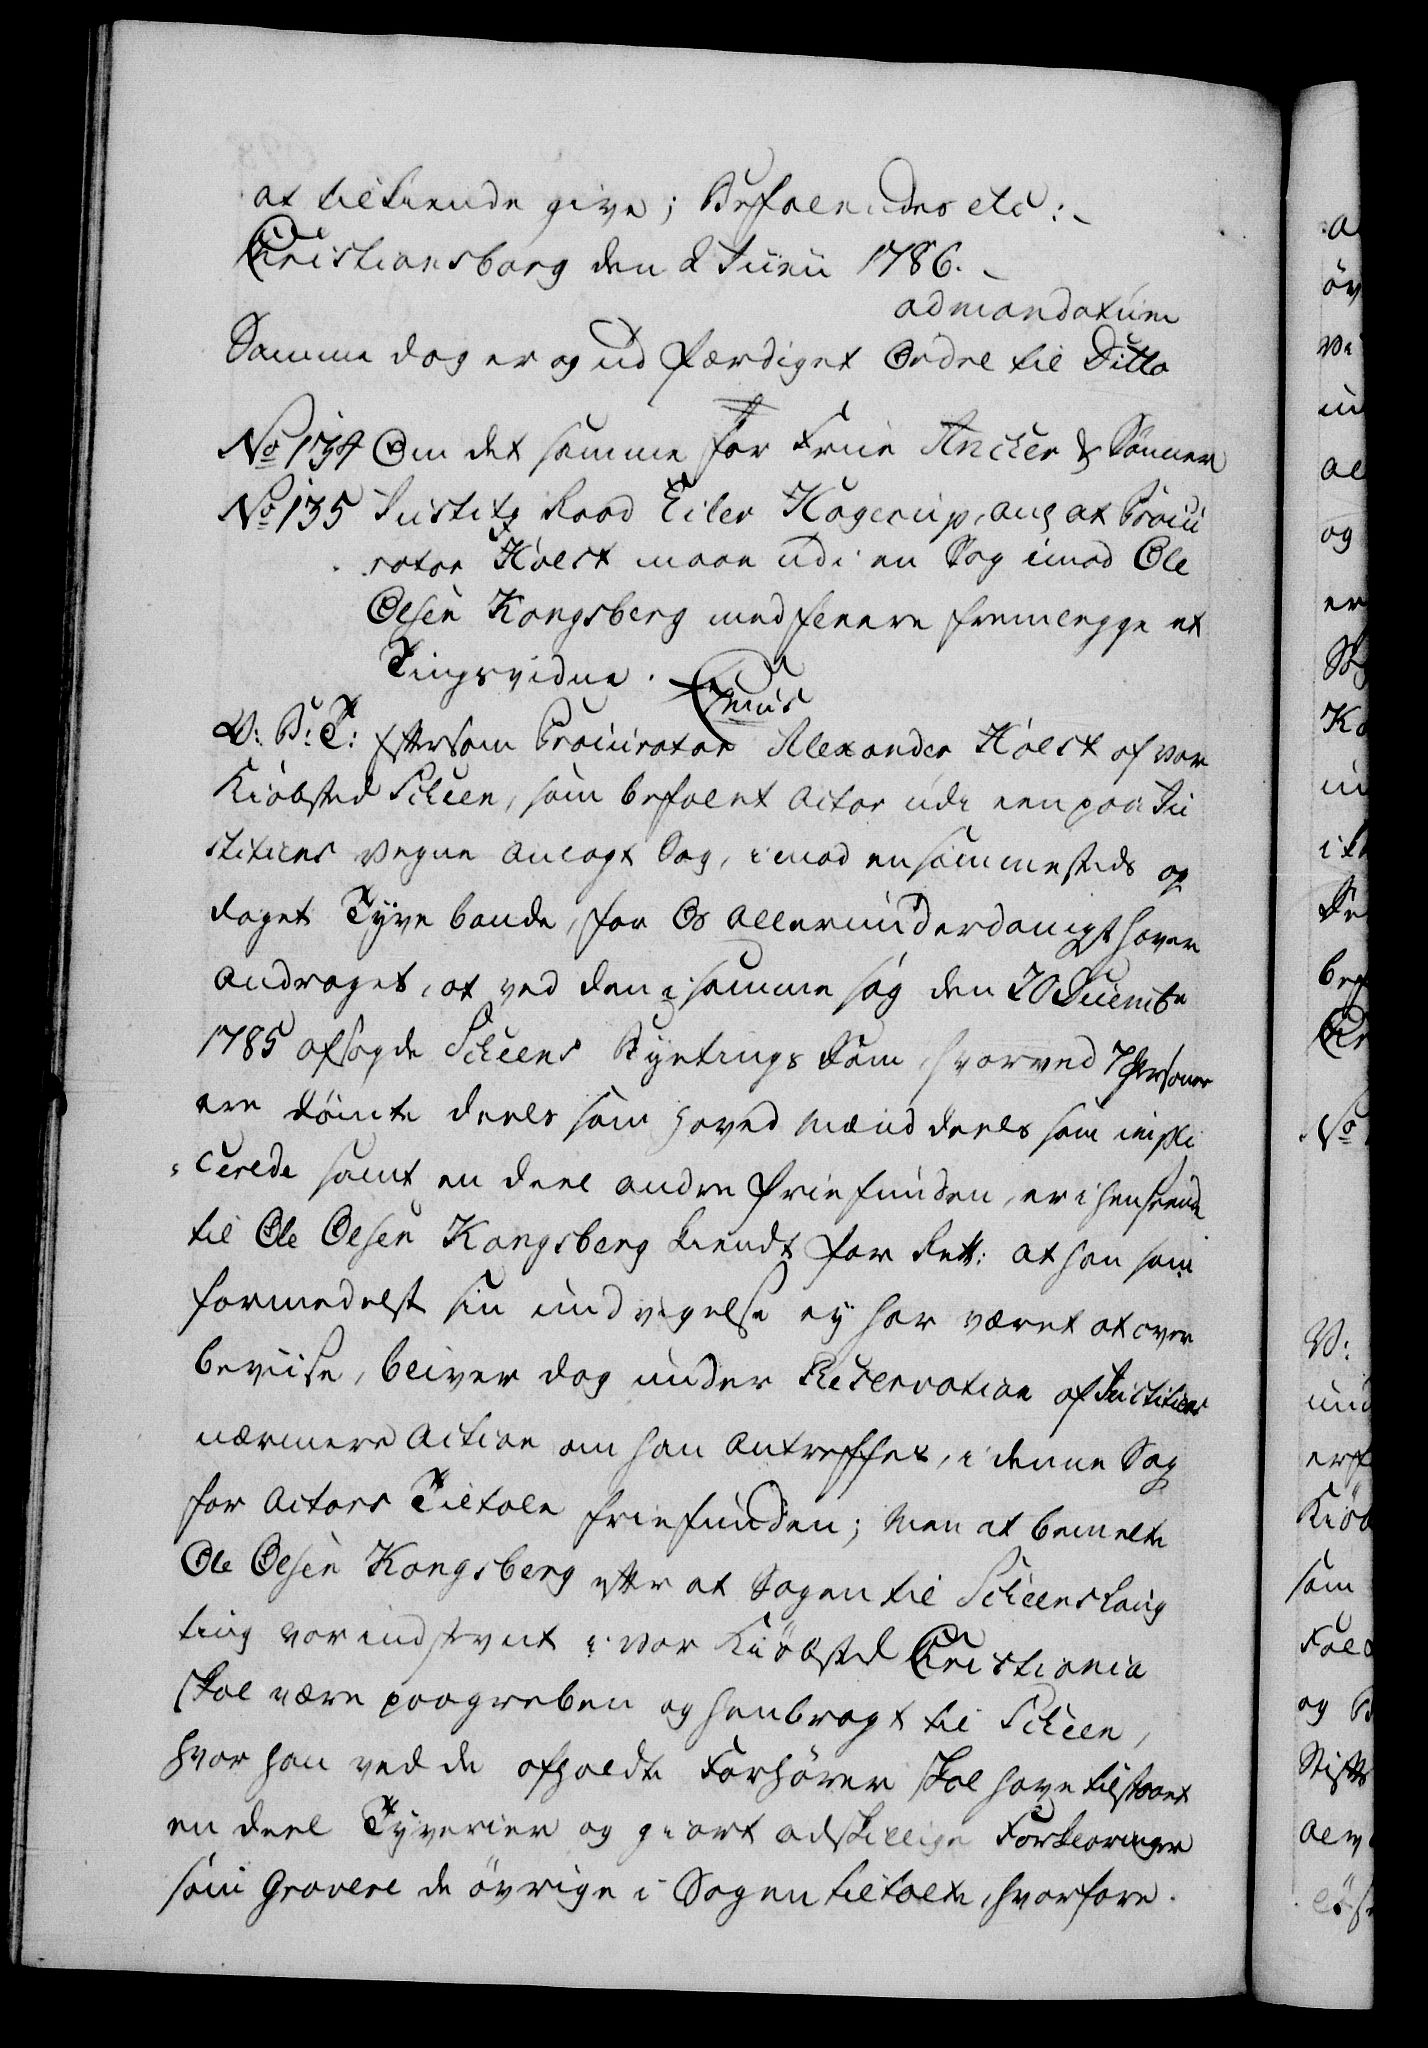 at tilkiende give; Befalendes etc:
Christiansborg den 2 Junii 1786.
ad mandatum
Samme dag er og udfærdiget Ordre til Ditto
No 134 Om det samme for Frue Ancher & Sønner
No 135 Justitz Raad Eiler Hagerup, ang at Procu
rator Holst maae udi en Sag imod Ole
Olsen Kongsberg med flere fremlegge et
Tingsvidne.
V: B: T: Eftersom Procurator Alexander Holst af vor
Kiøbsted Scheen, som befalet Actor udi een paa Ju
stitiens vegne anlagt Sag, imod en sammesteds op
daget Tyve bande, for Os allerunderdanigst haver
andraget, at ved den i samme sag den 20 Decembr
1785 afsagde Scheens Byetings Dom, hvorved 7 Personer
ere dømte deels som hoved mænd deels som impli
cerede samt en deel andre friefunden, er i henseende
til Ole Olsen Kongsberg kiendt for Rett: at han som
formedelst sin undvigelse ey har været at over
beviise, bliver dog under Reservation af Justitiens
nærmere Action om han antreffes, i denne Sag
for Actors Tiltale friefunden; men at bemelte
Ole Olsen Kongsberg efter at Sagen til Scheens Laug
ting var indstevnt i vor Kiøbsted Christiania
skal være paagreben og henbragt til Scheen,
hvor han ved de afholdte Forhører skal have tilstaaet
en deel Tyverier og giort adskillige Forklaringer
som gravere de øvrige i Sagen tiltalte, hvorfore